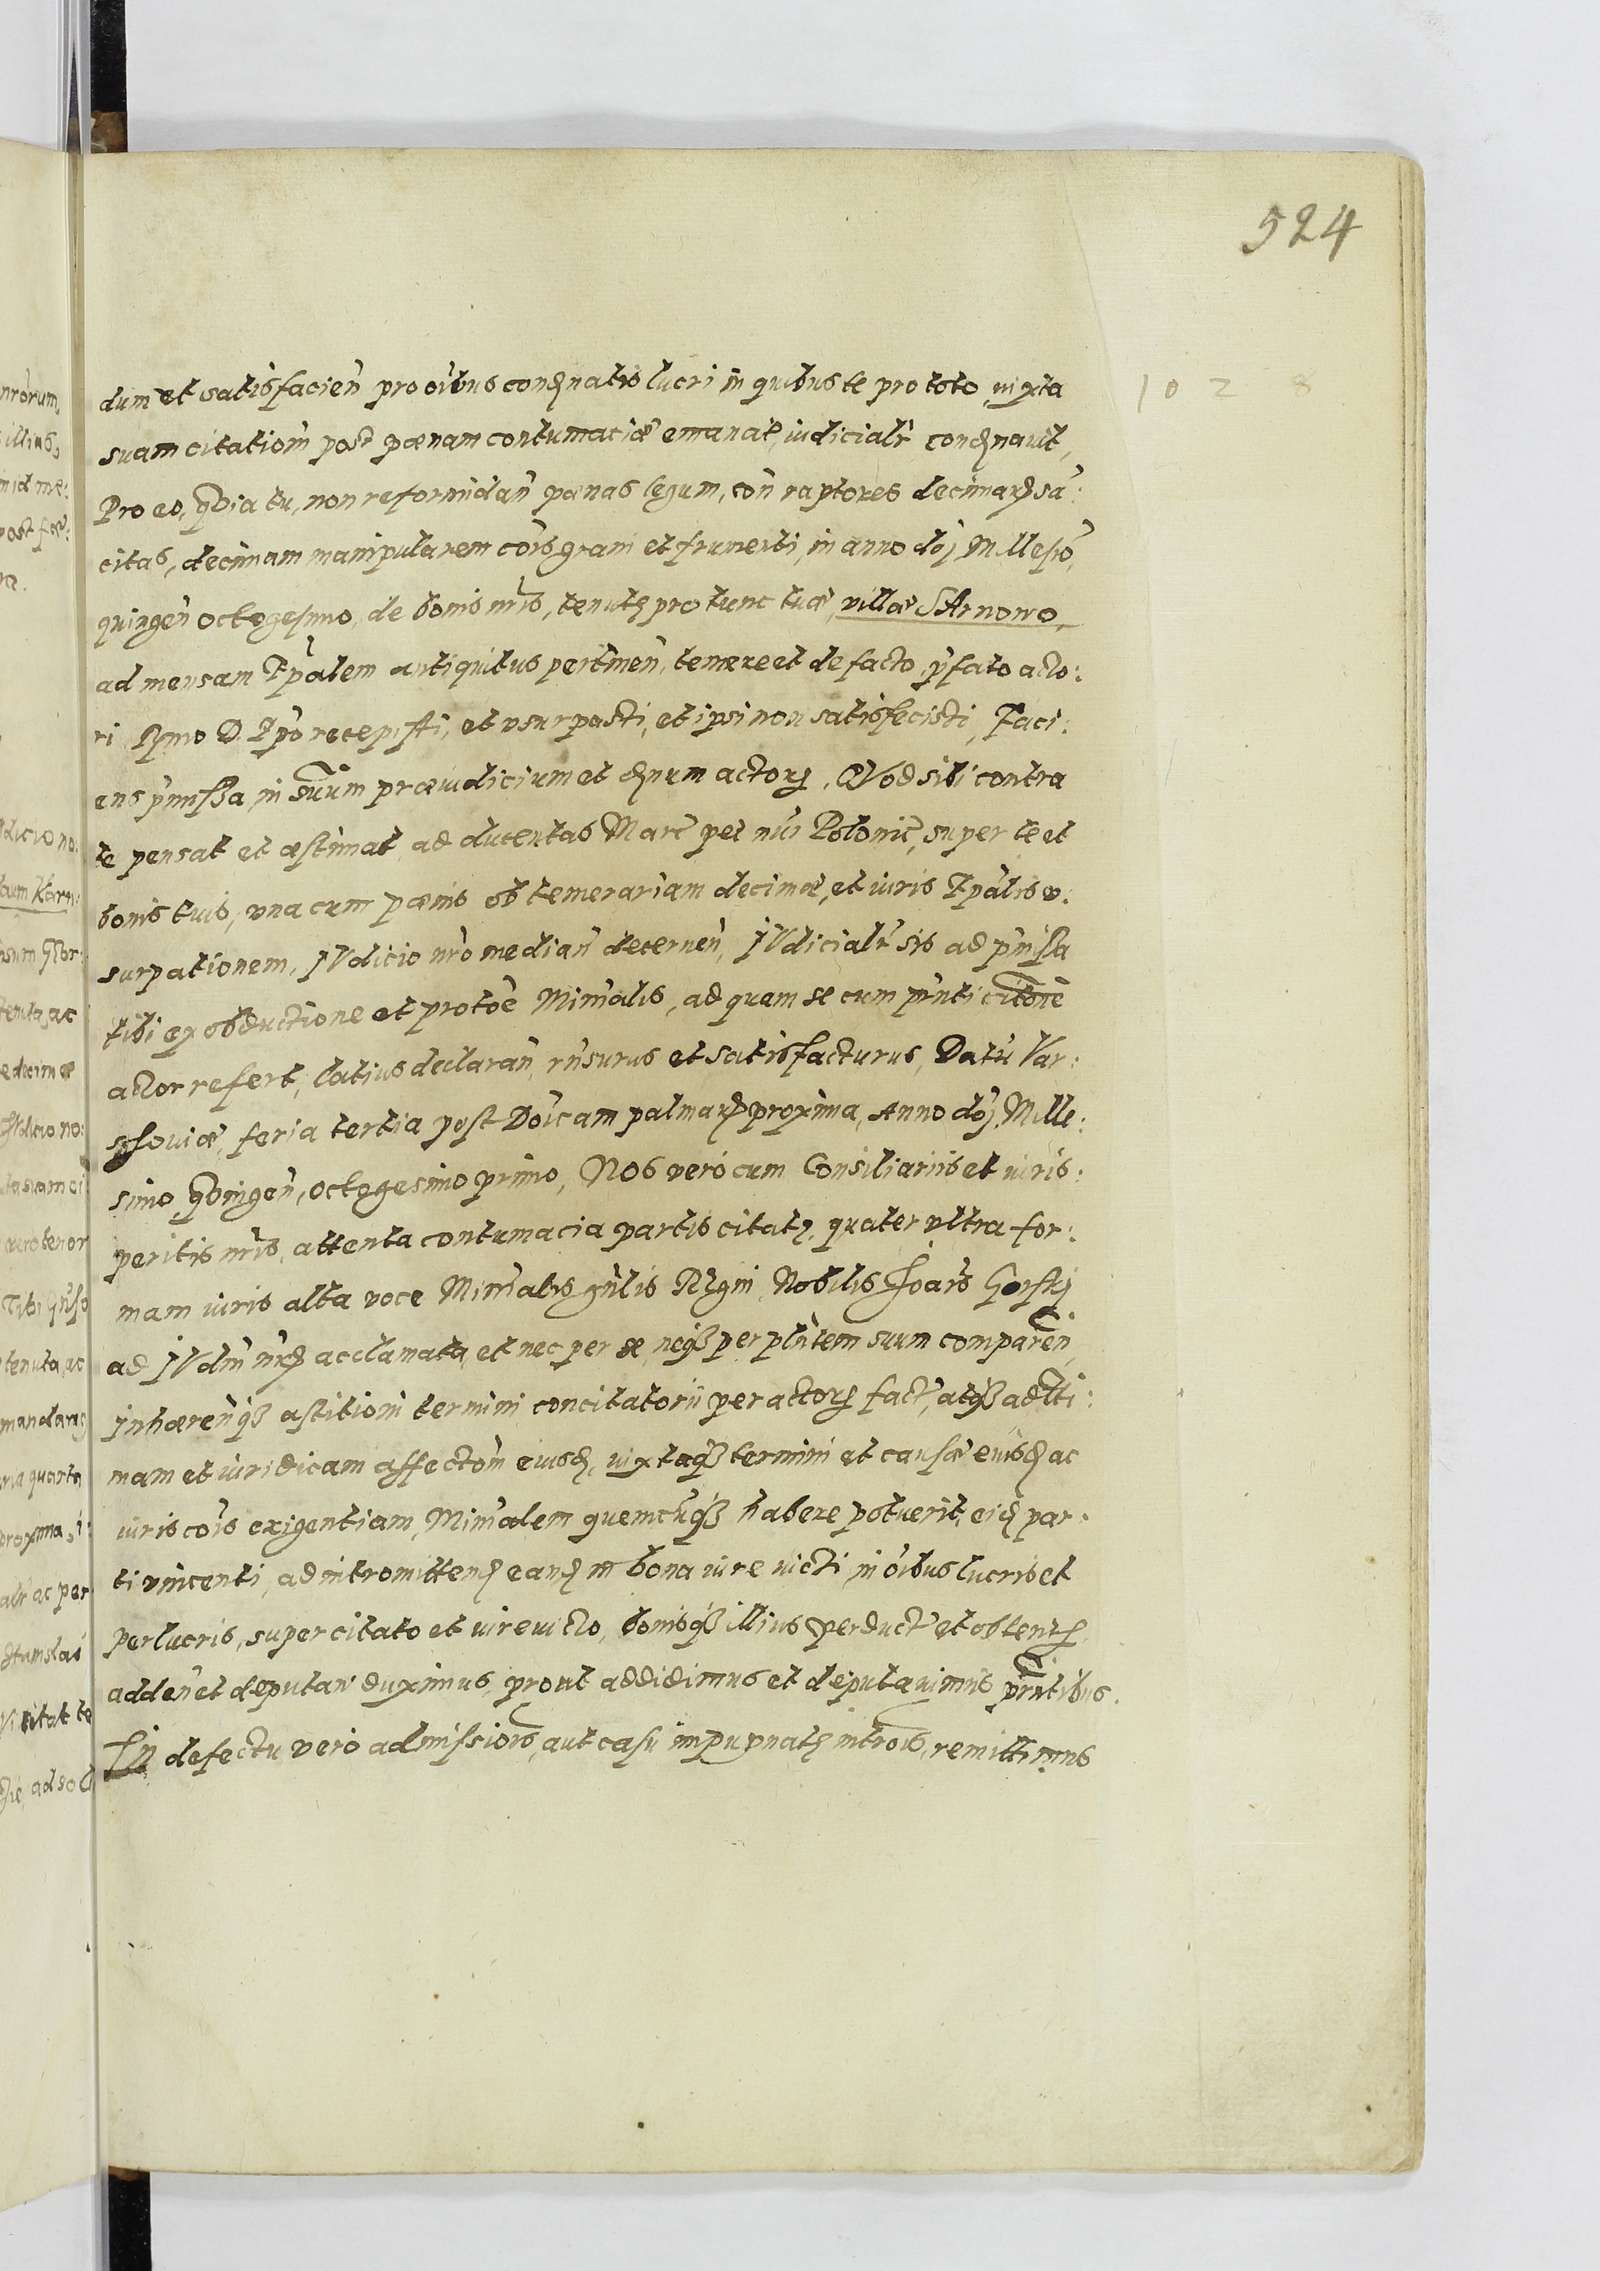 524
1028
dum et satisfacien̄ pro oībus condemnatis lucri in quibus te pro toto, iuxta
suam citatiom̄ post pœnam contumaciæ emanat, iudicialr̄ condemnauit,
Pro eo, qVia tu, non reformidan̄ pœnas legum, con̄ raptores decimarum sā:
citas, decimam manipularem cōis grani et frumenti, in anno dōi Millesīo,
quingen̄ octogesimo, de bonis nr̄is, tenutæ pro tunc tuæ, villæ SArnowo,
ad mensam Epālem antiquitus pertinen̄, temere et de facto, p̄fato acto:
ri Rmo D. Ep̄o recepisti, et vsurpasti, et ipsi non satisfecisti, Faci:
ens p̄missa, in suum præiudicium et damnum actoris, QVod sibi contra
te pensat et æstimat ad ducentas Marc̄ pec̄ nūi Polonic̄, super te et
bonis tuis, vna cum pœnis ob temerariam decimæ, et iuris Epālis v:
surpationem, JVdicio nr̄o median̄ decernen̄, JVdicialr̄ sis ad p̄missa
tibi ex obductione et protōe Minīalis, ad quam se cum p̄nti citōne
actor refert, latius declaran̄, rn̄surus et satisfacturus, Datū Var:
schouiæ, feria tertia post Doīcam palmarum proxima, Anno dōi. Mille:
simo, qVingen̄, octogesimo primo, NOs vero cum Consiliariis et iuris:
peritis nr̄is, attenta contumacia partis citatæ, quater vltra for:
mam iuris alta voce Minīalis gn̄lis Regni, Nobilis Joān̄is Gorskj
ad JVdīū nr̄um acclamata, et nec per se neqß per pln̄tem suum comparen̄,
Jnhæren̄qß astitiom̄ termini concitatorii per actorem fact̄, atqß ad lti:
mam et iuridicam affectōm̄ eiusdem, iuxtaqß termini et causæ euisdem ac
iuris cōis exigentiam, Minīalem quemcūqß habere potuerit, eidem par:
ti vincenti, ad intromittendum eandem in bona iure victi in oībus lucris et
perlucris, super citato et iure victo, bonisqß illius perduct̄ et obtentis,
adden̄ et deputan̄ duximus, prout addidimus et deputauimus p̄ntibus.
In defectu vero admissiōis, aut casu impugnatæ introis, remittimus